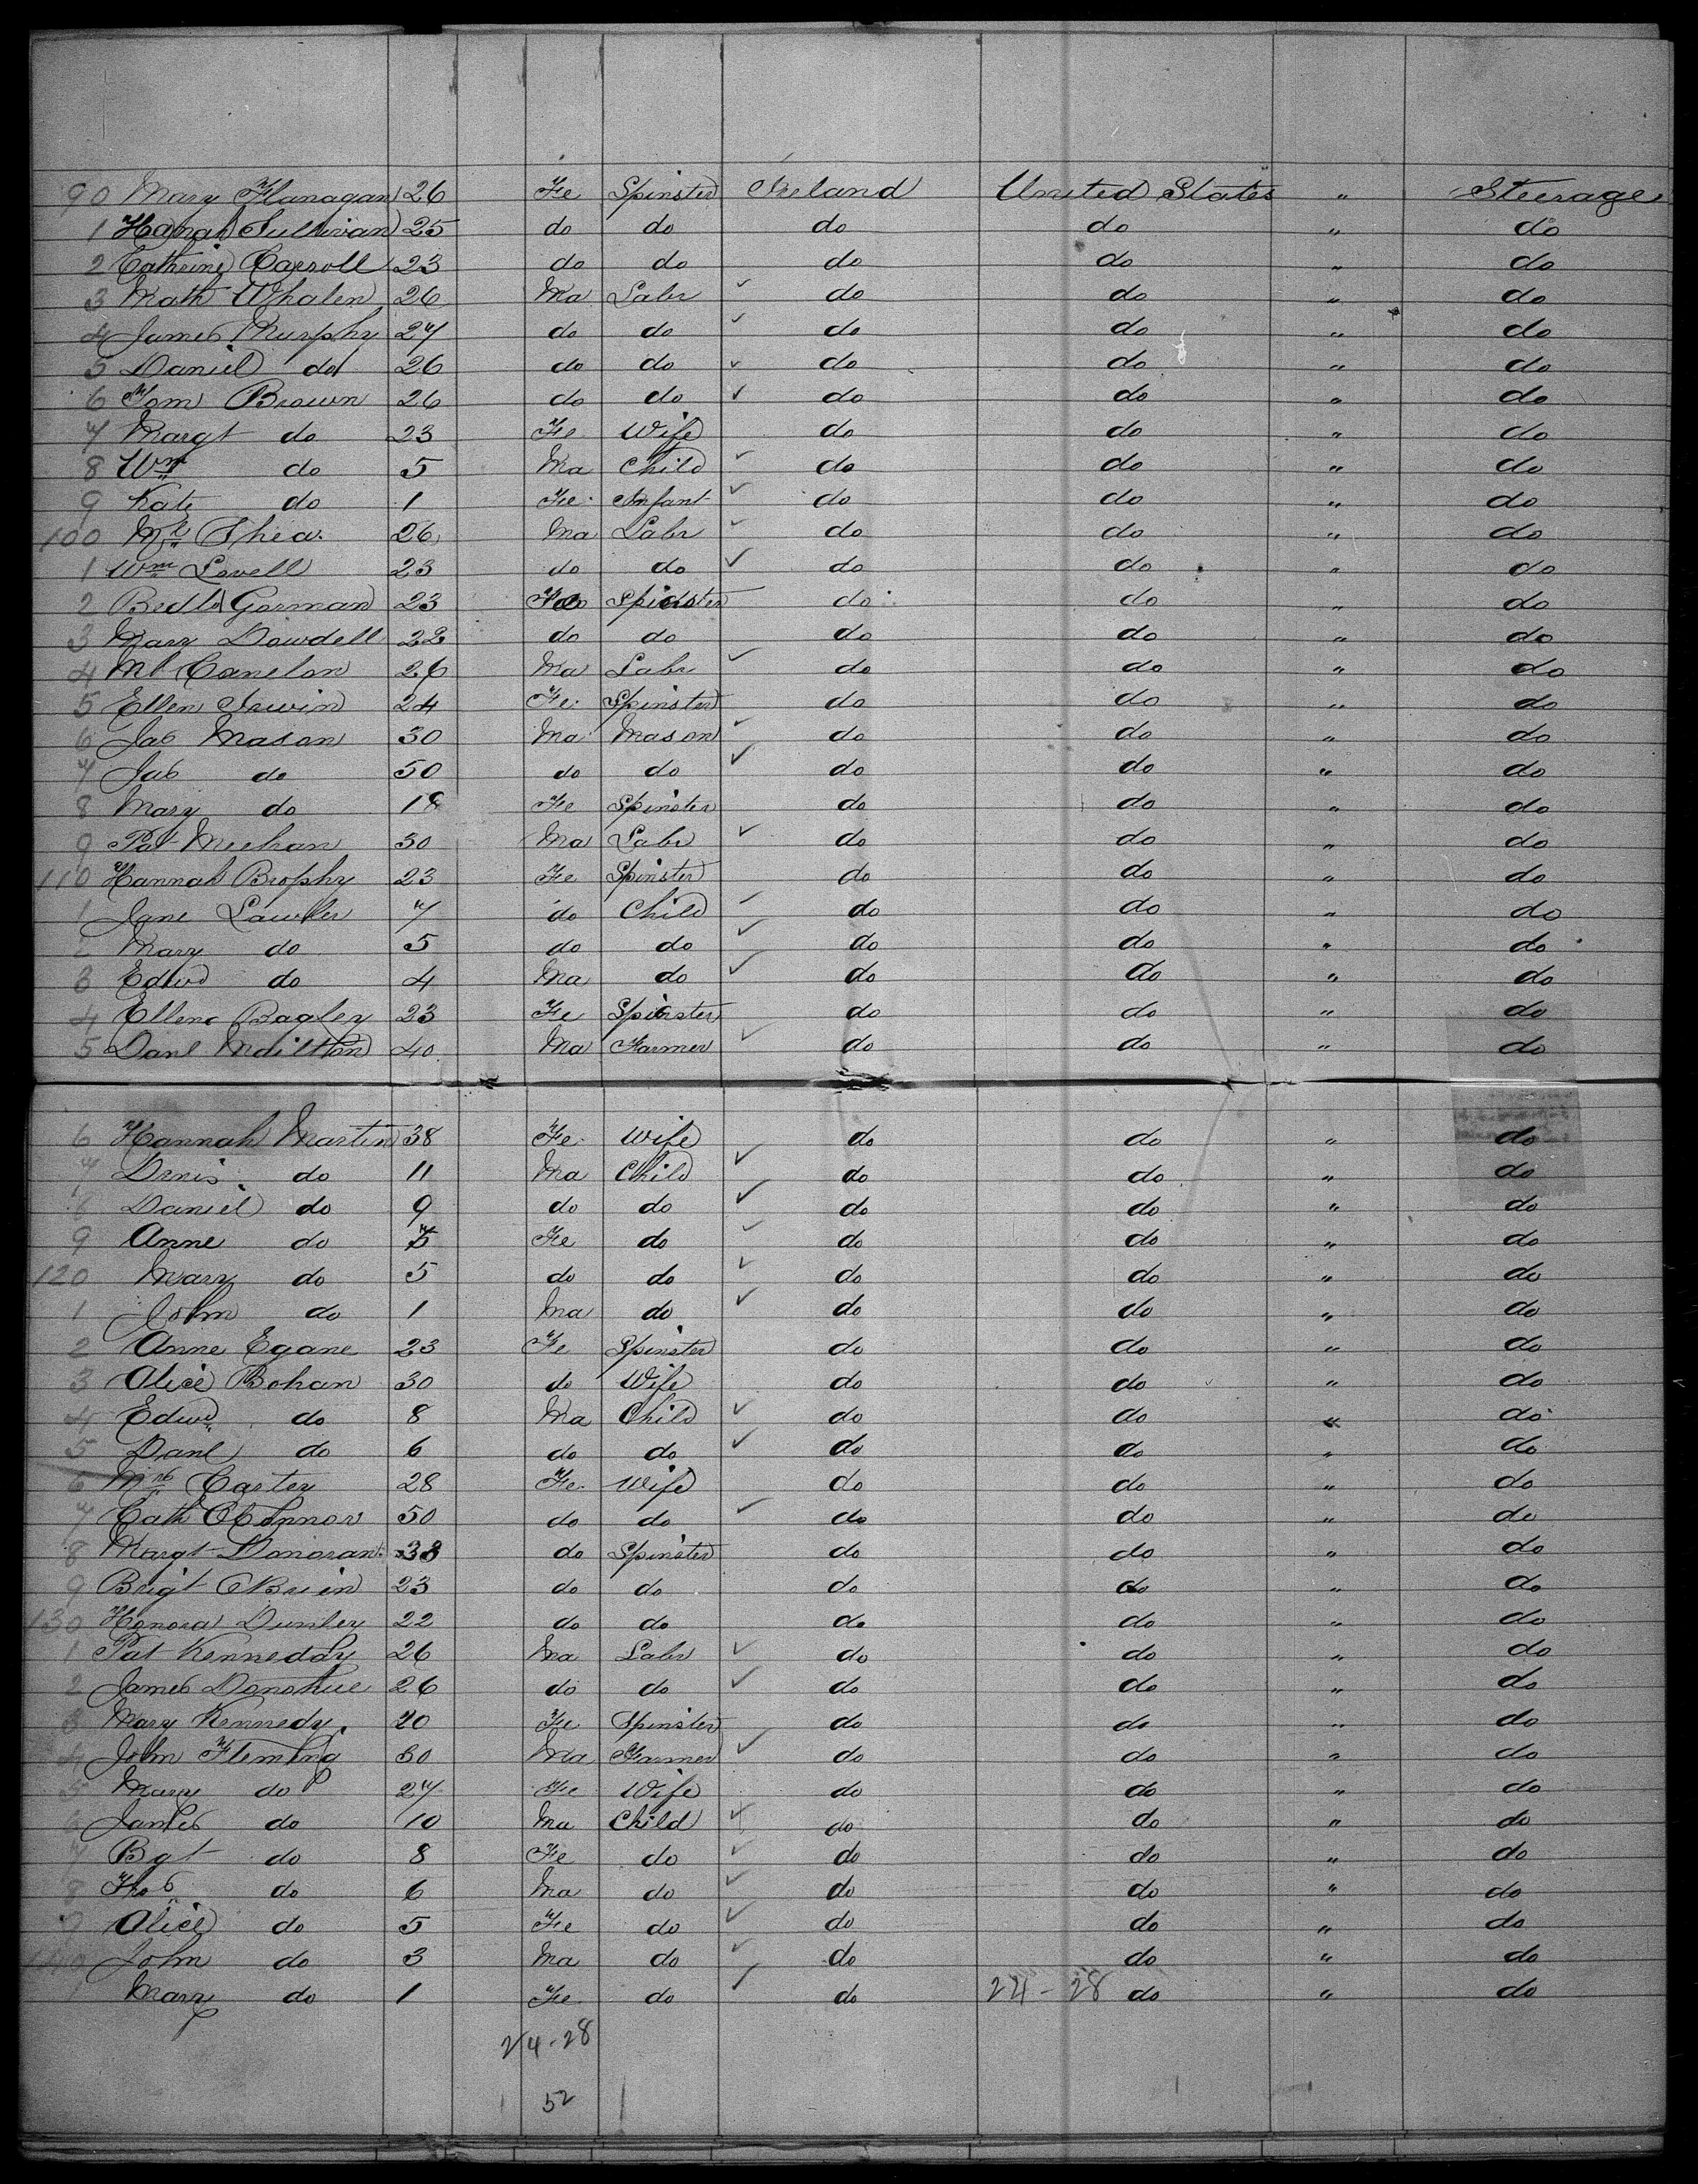 90 Mary Flanagan 26 Fe Spinster Ireland United States " Steerage
1 Hannah Sullivan 25 do do do do " do
2 Catherine Carroll 23 do do do do " do
3 Math Whalen 26 Ma Labr ✓ do do " do
4 James Murphy 27 do do ✓ do do " do
5 Daniel do 26 do do ✓ do do " do
6 Tom Brown 26 do do ✓ do do " do
7 Margt do 23 Fe Wife do do " do
8 Wm do 5 Ma Child ✓ do do " do
9 Kate do 1 Fe Infant ✓ do do " do
100 Ml Shea 26 Ma Labr ✓ do do " do
1 Wm Lovell 23 do do ✓ do do " do
2 Gorman 23 Fe Spinster do do " do
3 Mary Dowdell 22 do do do do " do
4 Ml Conelon 26 Ma Labr ✓ do do " do
5 Ellen Irwin 24 Fe Spinster do do " do
6 Jas Mason 30 Ma Mason ✓ do do " do
7 Jas do 50 do do ✓ do do " do
8 Mary do 18 Fe Spinster do do " do
9 Pat Meehan 30 Ma Labr ✓ do do " do
110 Hannah Brophy 23 Fe Spinster do do " do
1 Jane Lawler 7 do Child ✓ do do " do
2 Mary do 5 do do ✓ do do " do
3 Edwd do 4 Ma do ✓ do do " do
4 Ellen Bagley 23 Fe Spinster do do " do
5 Danl 40 Ma Farmer ✓ do do " do
6 Hannah Martin 38 Fe Wife do do " do
7 Denis do 11 Ma Child ✓ do do " do
8 Daniel do 9 do do ✓ do do " do
9 Anne do 7 Fe do ✓ do do " do
120 Mary do 5 do do ✓ do do " do
1 John do 1 Ma do ✓ do do " do
2 Anne Egane 23 Fe Spinster do do " do
3 Alice Bohan 30 do Wife do do " do
4 Edwd do 8 Ma Child ✓ do do " do
5 Danl do 6 do do ✓ do do " do
6 Mrs Carter 28 Fe Wife do do " do
7 Cath OConnor 50 do do ✓ do do " do
8 Margt Donovan 33 do Spinster do do " do
9 Brigt OBrien 23 do do do do " do
130 Honora Dunley 22 do do do do " do
1 Pat Kenneddy 26 Ma Labr ✓ do do " do
2 James Donohue 26 do do ✓ do do " do
3 Mary Kennedy 20 Fe Spinster do do " do
4 John Fleming 30 Ma Farmer ✓ do do " do
5 Mary do 27 Fe Wife do do " do
6 James do 10 Ma Child ✓ do do " do
7 Bgt do 8 Fe do ✓ do do " do
8 Thos do 6 Ma do ✓ do do " do
9 Alice do 5 Fe do ✓ do do " do
140 John do 3 Ma do ✓ do do " do
1 Mary do 1 Fe do ✓ do 24-28 do " do
24-28
52